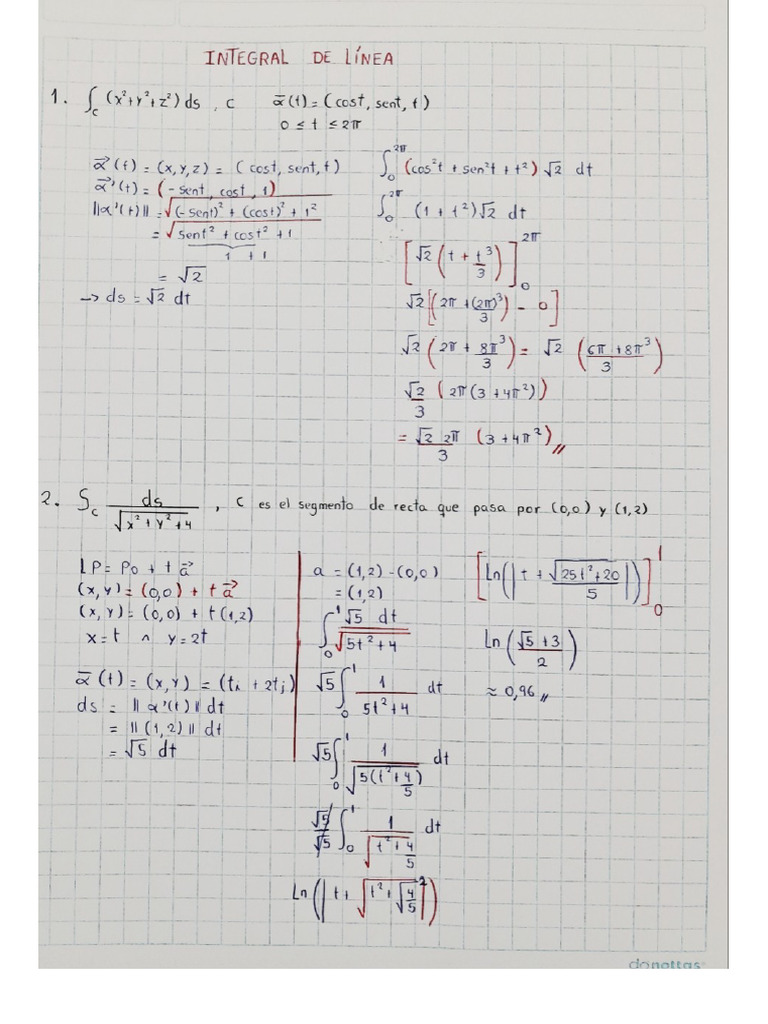 INTEGRAL DE LÍNEA
1. ∫_C (x²+y²+z²) ds , C ᾱ(t) = (cost, sent, t)
0 ≤ t ≤ 2π
α⃗(t) = (x,y,z) = (cost, sent, t)
α⃗'(t) = (-sent, cost, 1)
||α'(t)|| = √((-sent)² + (cost)² + 1²)
= √(sent² + cost² + 1)
1 + 1
= √2
→ ds = √2 dt
∫₀^2π (cos²t + sen²t + t²) √2 dt
∫₀^2π (1 + t²) √2 dt
[√2 (t + t³/3)]₀^2π
√2 [(2π + (2π)³/3) - 0]
√2 (2π + 8π³/3) = √2 (6π + 8π³/3)
√2/3 (2π(3 + 4π²))
= √2 2π/3 (3 + 4π²) //
2. S_C ds/√(x² + y² + 4) , C es el segmento de recta que pasa por (0,0) y (1,2)
LP = Po + t a⃗
(x,y) = (0,0) + t a⃗
(x,y) = (0,0) + t(1,2)
x = t ∧ y = 2t
ᾱ(t) = (x,y) = (ti + 2tj)
ds = ||α'(t)|| dt
= ||(1,2)|| dt
= √5 dt
a = (1,2) - (0,0)
= (1,2)
∫₀¹ √5 dt/√(5t² + 4)
√5 ∫₀¹ 1/(5t² + 4) dt
√5 ∫₀¹ 1/√(5(t² + 4/5)) dt
√5/√5 ∫₀¹ 1/√(t² + 4/5) dt
Ln(|t + √(t² + √(4/5)²)|)
[Ln(|t + √(25t² + 20)/5|)]₀¹
Ln((√5 + 3)/2)
≈ 0,96 //
donottas